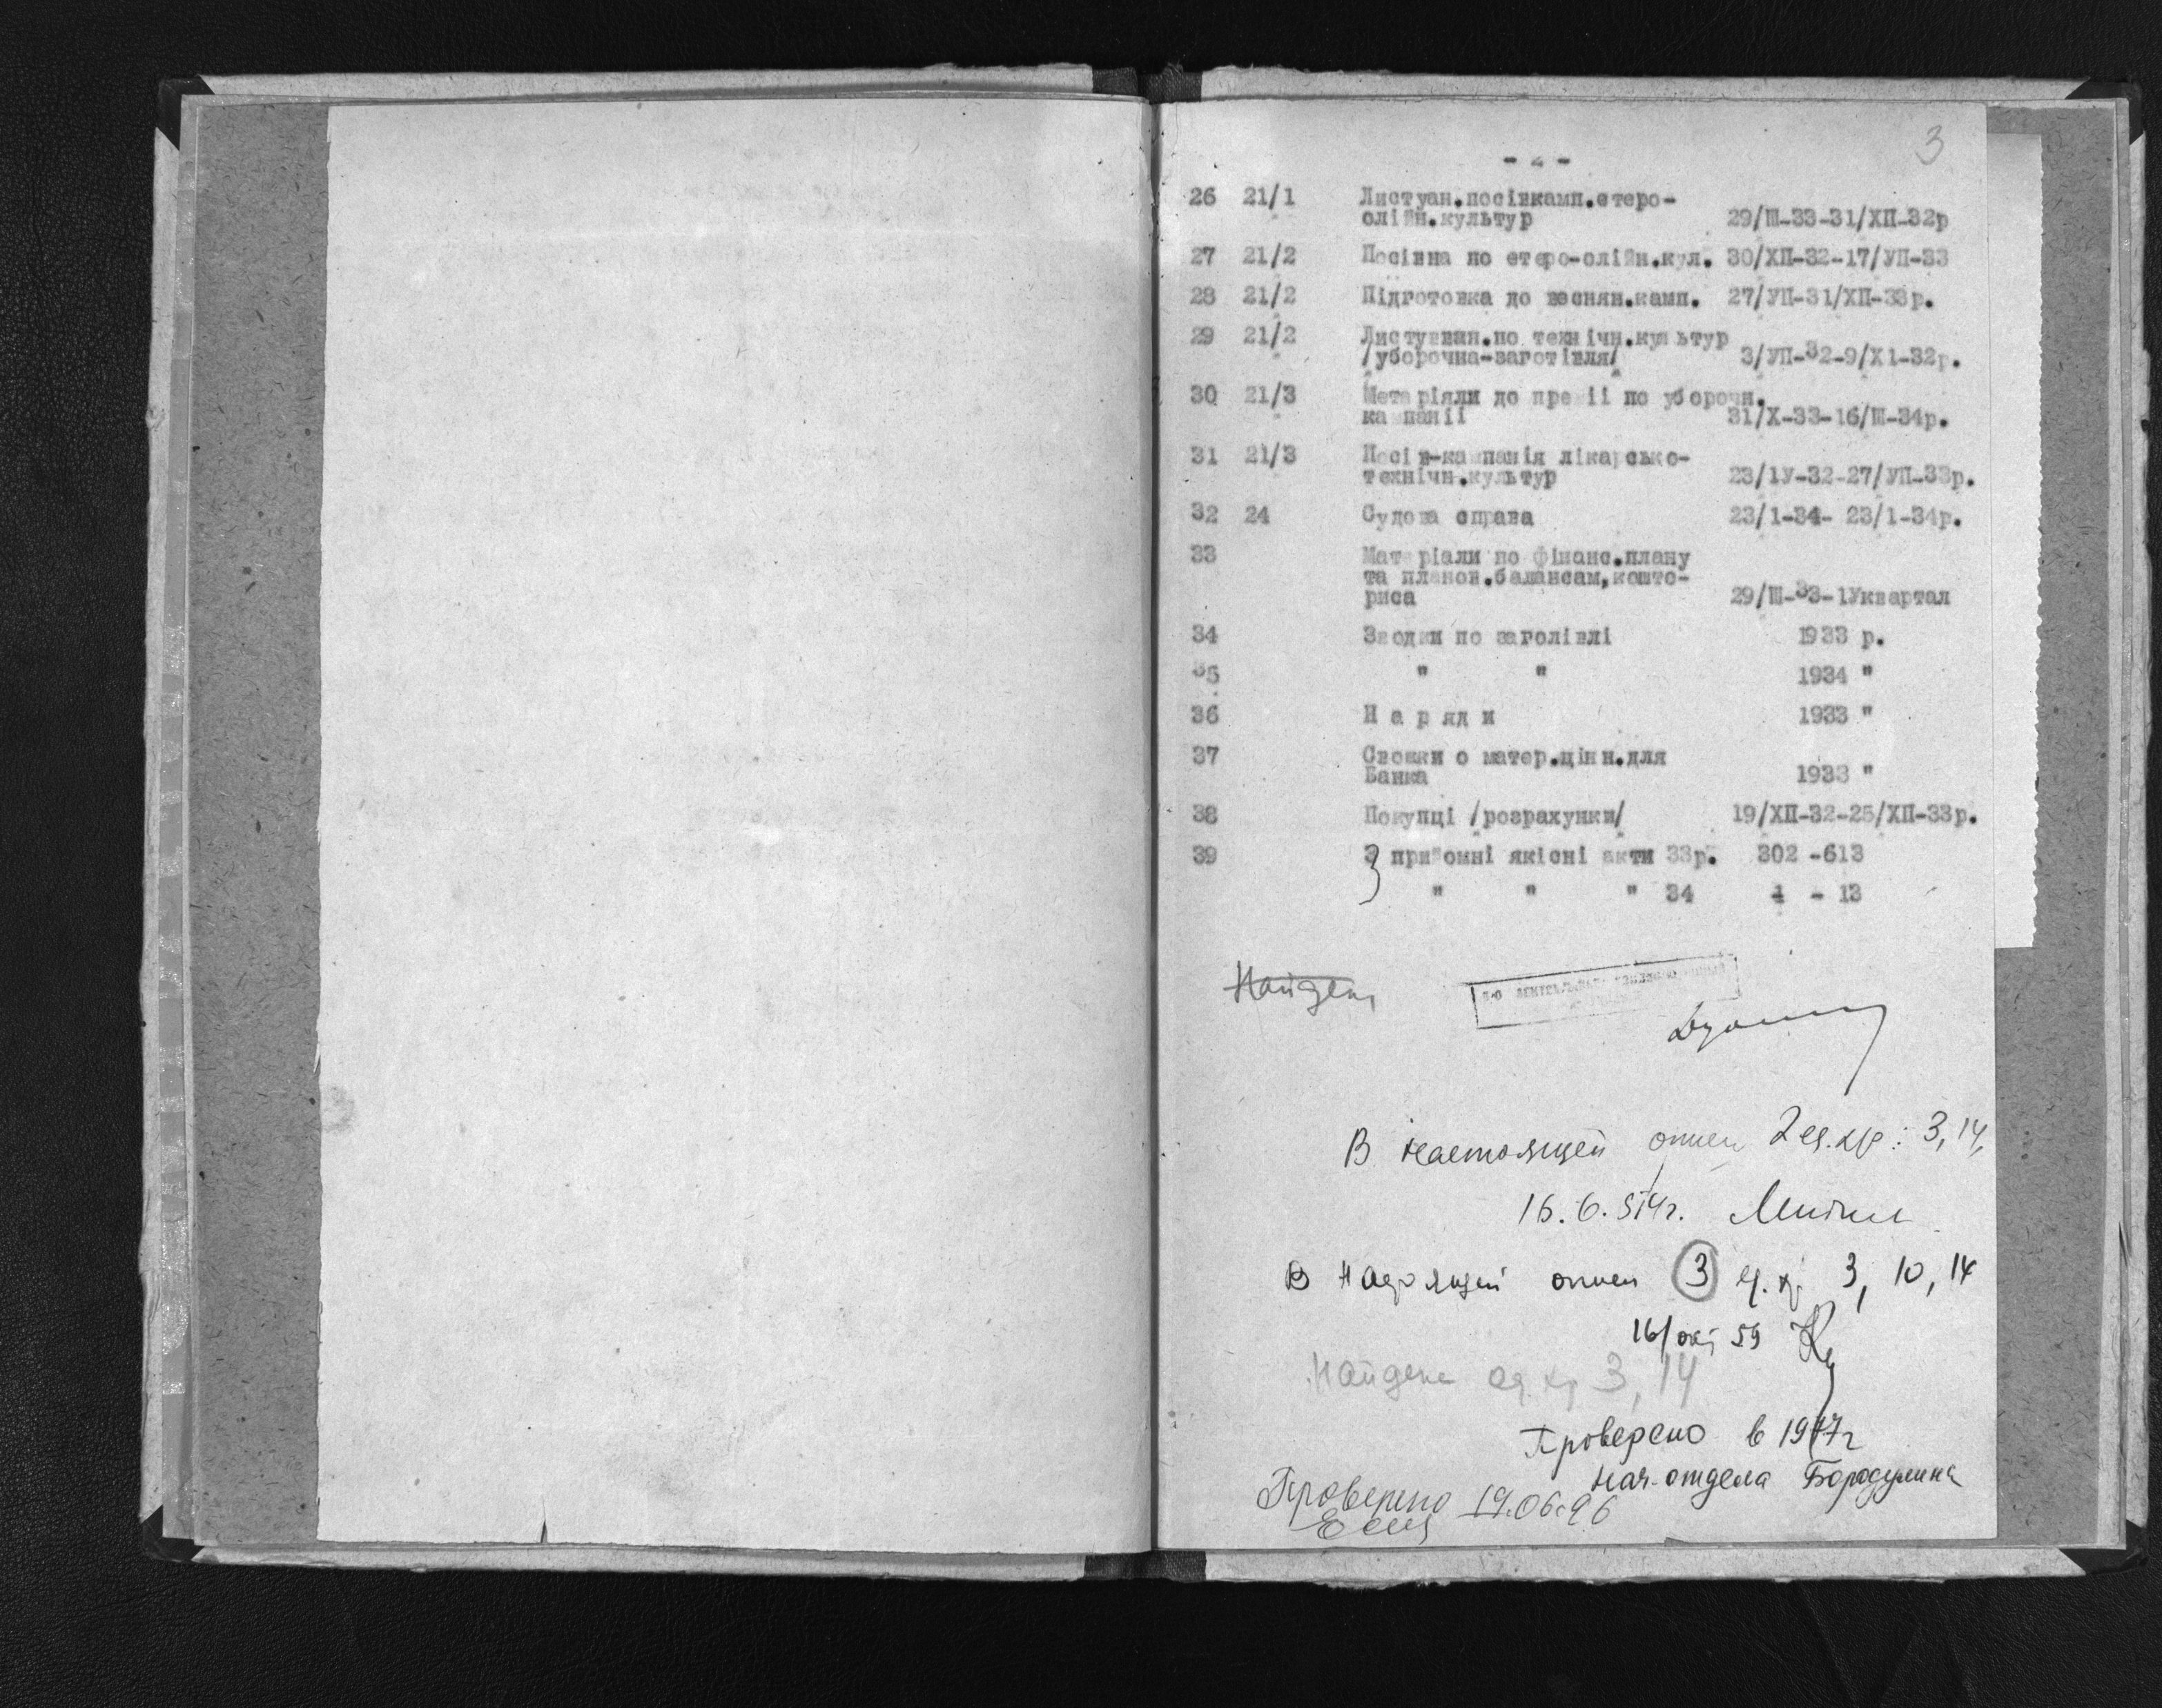 3
- 2 -
26 21/1 Листуан.посівкамп.етеро-
олійн.культур 29/Ш-33-31/ХП-32р
27 21/2 Посівна по етеро-олійн.кул. 30/ХП-32-17/УП-33
28 21/2 Підготовка до веснян.камп. 27/УП-31/ХП-33р.
29 21/2 Листуван.по технічн.культур
/уборочна-заготівля/ 3/УП-32-9/Х1-32р.
30 21/3 Метаріяли до премії по уборочн.
кампанії 31/Х-33-16/Ш-34р.
31 21/3 Посів-кампанія лікарсько-
технічн.культур 23/1У-32-27/УП-33р.
32 24 Судова справа 23/1-34- 23/1-34р.
33 Матеріали по фінанс.плану
та планов.балансам,кошто-
риса 29/Ш-33-1Уквартал
34 Зводки по заголівлі 1933 р.
35 " " 1934 "
36 Н а р я д и 1933 "
37 Сводки о матер.цінн.для
Банка 1933 "
38 Покупці /розрахунки/ 19/ХП-32-25/ХП-33р.
39 З прийомні якісні акти 33р. 302 -613
" " " 34 1 - 13
Найдены
В настоящей описи 2 ед.хр: 3, 14,
16.6.54г.
В настоящей описи 3 ед. хр 3, 10, 14
16/окт 59
Найдено ед. хр 3, 14
Проверено в 1977г
нач. отдела Бородулина
Проверено 19.06.96